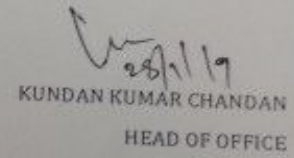 28/1/19
KUNDAN KUMAR CHANDAN
HEAD OF OFFICE